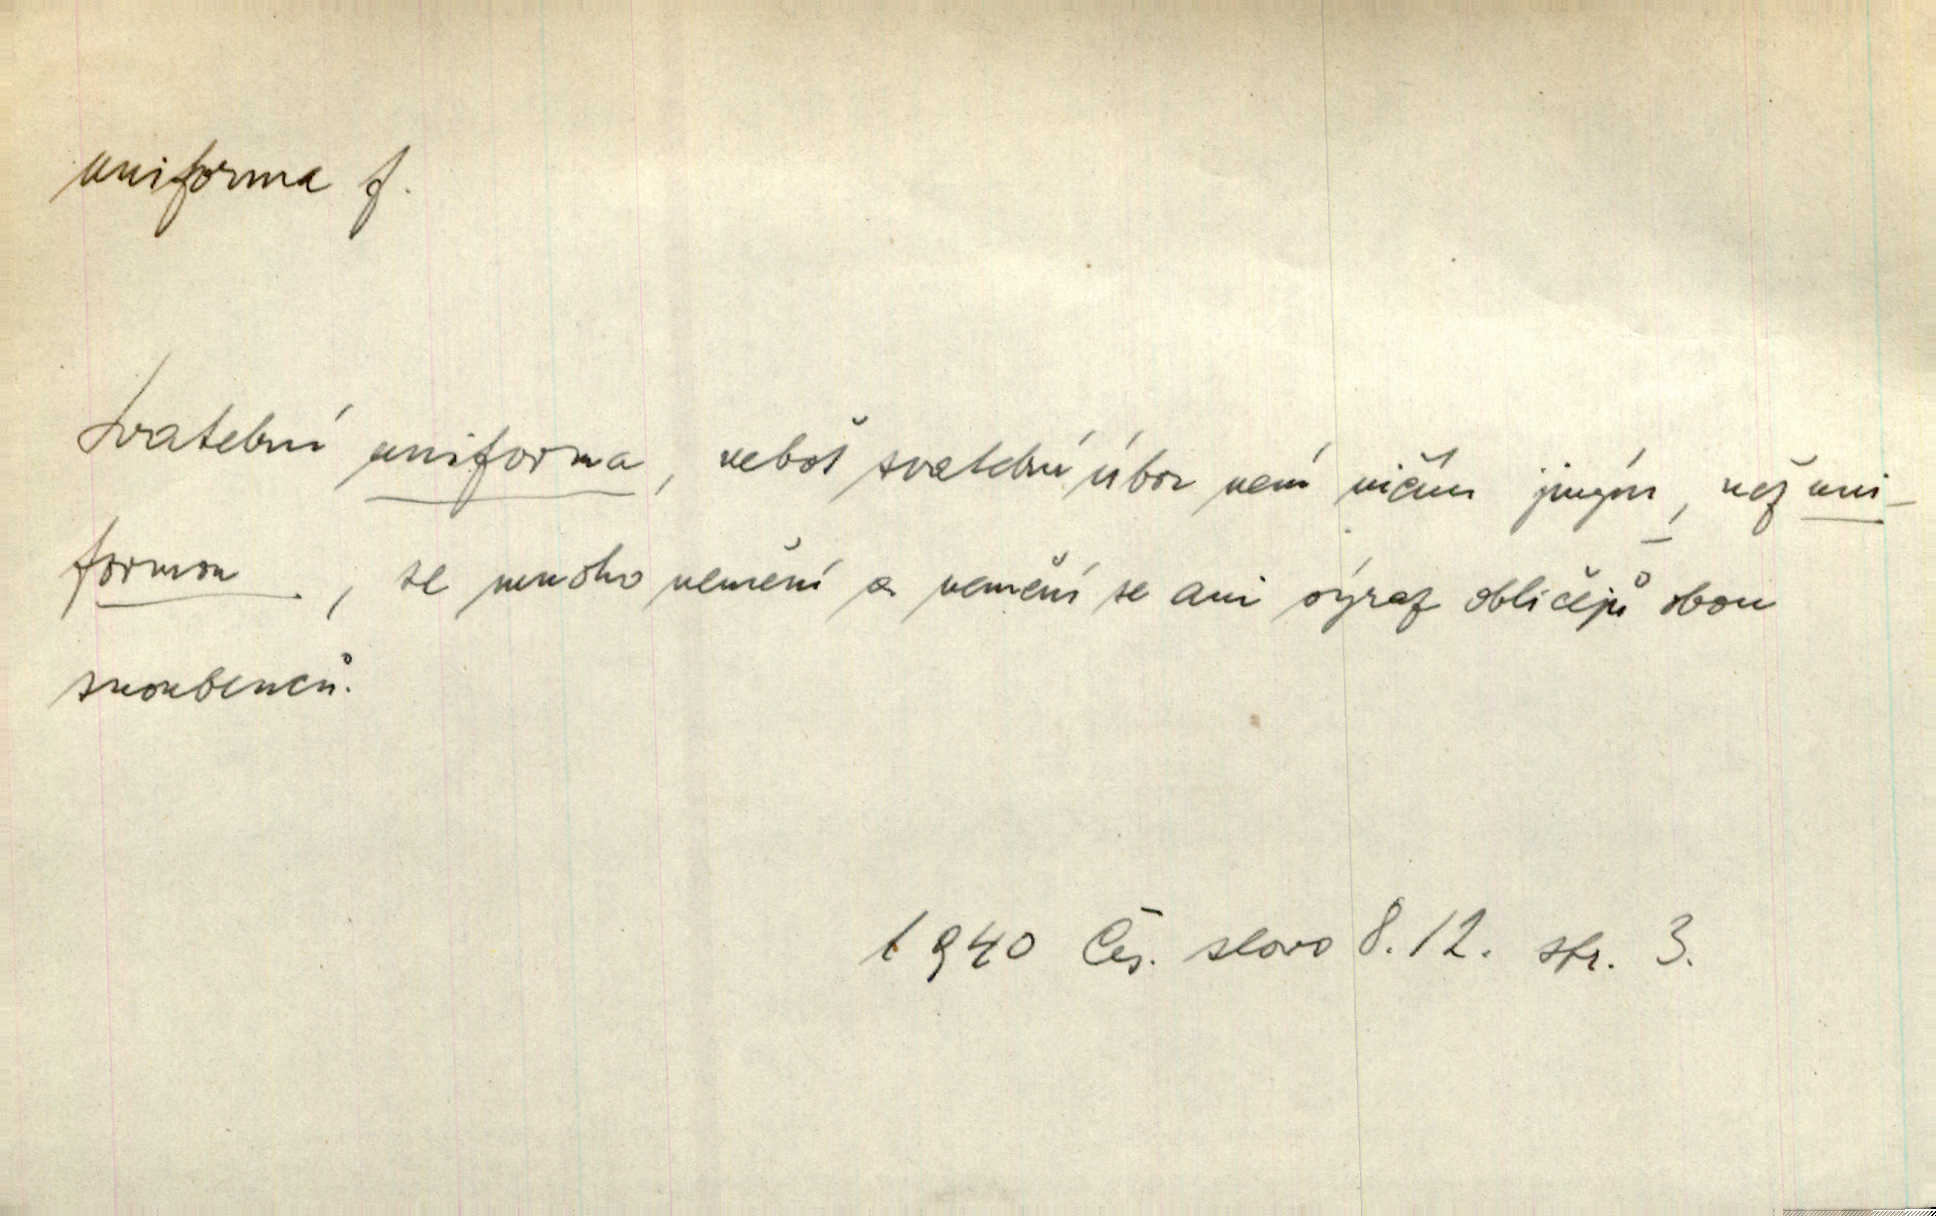 uniforma f.
Svatební uniforma, neboť svatební úbor není ničím jiným, než uni-
formou, se mnoho nemění a nemění se ani výraz obličejů obou
snoubenců.
1940 Čes. slovo 8. 12. str. 3.